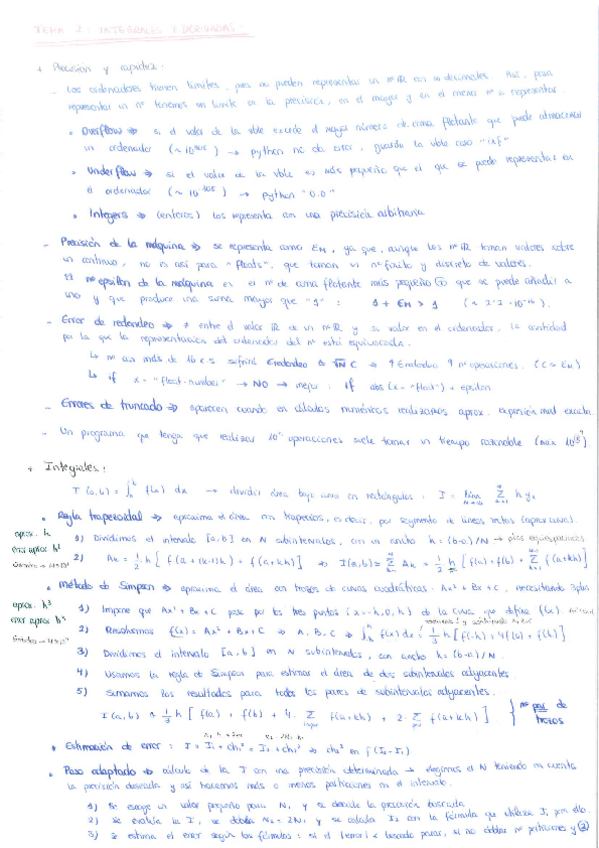 TEMA 1: INTEGRALES Y DERIVADAS
+ Precisión y rapidez:
- Los ordenadores tienen límites, pues no pueden representar un nº ℝ con ∞ decimales. Así, para
representar un nº tenemos un límite en la precisión, en el mayor y en el menor nº a representar.
• Overflow ⇒ si el valor de la vble excede el mayor número de coma flotante que puede almacenar
un ordenador → python no da error, guarda la vble como "inf"
• Underflow ⇒ si el valor de la vble es más pequeño que el que se puede representar en
el ordenador → python "0.0"
• Integers ⇒ (enteros) los representa con una precisión arbitraria
- Precisión de la máquina ⇒ se representa como εM, ya que, aunque los nº ℝ toman valores sobre
un continuo, no es así para "floats", que toman un nº finito y discreto de valores.
El nº epsilon de la máquina es el nº de coma flotante más pequeño que se puede añadir a
uno y que produce una suma mayor que "1": 1 + εM > 1
- Error de redondeo ⇒ ≠ entre el valor ℝ de un nº ℝ y su valor en el ordenador, la cantidad
por la que la representación del ordenador del nº está equivocada.
↳ nº con más de 16 c.s sufrirá √N C ⇒ nº operaciones. (C ≈ εM)
↳ if x = "float-number" → NO → mejor: if abs(x - "float") < epsilon
- Errores de truncado ⇒ aparecen cuando en cálculos numéricos realizamos aprox. expresión mat exacta.
- Un programa que tenga que realizar operaciones suele tomar un tiempo razonable
+ Integrales:
I(a,b) = ∫ f(x) dx → dividir área bajo curva en rectángulos: I = lim Σ h yk
• Regla trapezoidal ⇒ aproxima el área con trapecios, es decir, por segmento de líneas rectas
aprox. h
error aprox h²
1) Dividimos el intervalo [a,b] en N subintervalos, con un ancho h = (b-a)/N
2) Ak = 1/2 h [f(a+(k-1)h) + f(a+kh)] ⇒ I(a,b) ≈ Σ Ak = 1/2 h [f(a) + f(b) + Σ f(a+kh)]
• Método de Simpson ⇒ aproxima el área con trozos de curvas cuadráticas: Ax² + Bx + C, necesitando 3 ptos
aprox. h³
1) Impone que Ax² + Bx + C pase por los tres puntos (x = -h, 0, h) de la curva que define f(x).
2) Resolvemos f(x) = Ax² + Bx + C ⇒ A, B, C ⇒ ∫ f(x) dx = 1/3 h [f(-h) + 4f(0) + f(h)]
3) Dividimos el intervalo [a,b] en N subintervalos, con ancho h = (b-a)/N.
4) Usamos la regla de Simpson para estimar el área de dos subintervalos adyacentes.
5) Sumamos los resultados para todos los pares de subintervalos adyacentes.
I(a,b) ≈ 1/3 h [f(a) + f(b) + 4 Σ f(a+kh) + 2 Σ f(a+kh)] } nº par de
trozos
• Estimación de error: I = I₁ + ch₁² = I₂ + ch₂² ⇒
• Paso adaptado ⇒ cálculo de la I con una precisión determinada → elegimos el N teniendo en cuenta
la precisión deseada y así hacemos más o menos particiones en el intervalo.
1) Se escoge un valor pequeño para N₁ y se decide la precisión buscada
2) Se evalúa la I₁, se dobla N₂ = 2N₁ y se calcula I₂ con la fórmula que utiliza I₁ por ello.
3) Se estima el error según las fórmulas: si el |error| < buscado parar, si no doblar nº particiones y ②